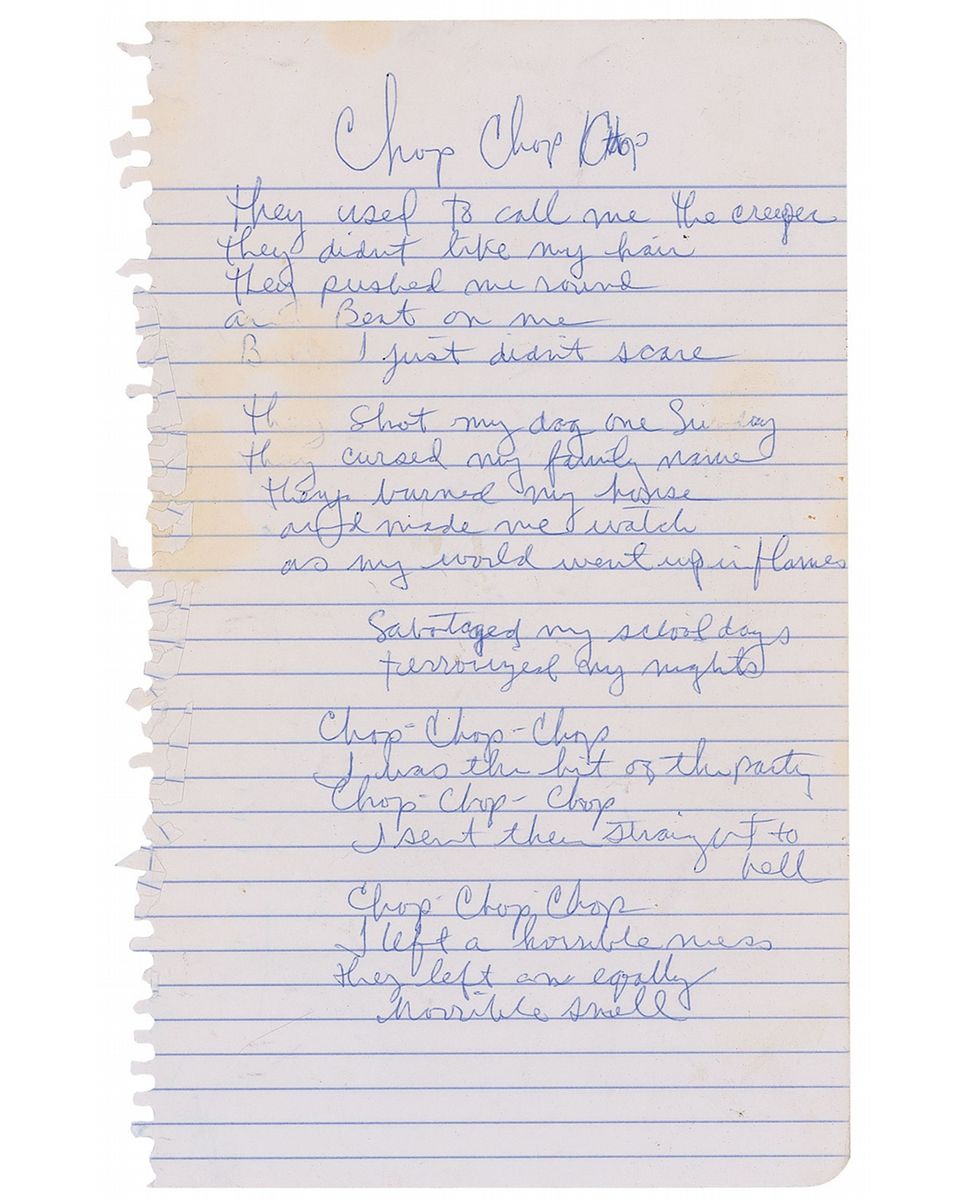 Chop Chop Chop
They used to call me the creeper
they didnt like my hair
they pushed me round
and Beat on me
B I just didn't scare
they Shot my dog one Sunday
they cursed my family name
they burned my house
and made me watch
as my world went up in flames
Sabotaged my school days
terrorized my nights
Chop-Chop-Chop
I was the hit of the party
Chop-Chop-Chop
I sent them straight to
hell
Chop-Chop Chop
I left a horrible mess
they left an equally
Horrible smell